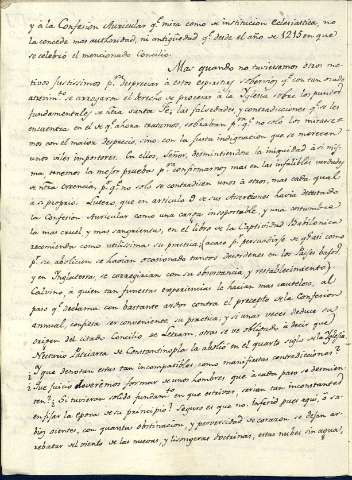 y à la Confesion Auricular q.e mira como de institucion Eclesiastica, no
la concede mas authoridad, ni antiguedad q.e desde el año de 1215 en que
se celebró el mencionado Concilio.
Mas quando no tuviesemos otros mo-
tivos justissimos p.a despreciar à estos espiritus q.e con tan osado
se arrogaron el derecho de procesar à la Iglesia sobre los puntos
fundamentales de ntra Santa Fé, las falsedades, y contradicciones q.e se les
encuentra en el de q.e ahora tratamos, sobrarian p.a q.e no solo los
mos con el maior desprecio, sino con la justa indignacion que se merecen
unos viles impostores. En ellos, Señor, desmintiendose la iniquidad à si mis-
ma, tenemos la mejor prueba p.a confirmarnos mas en las infalibles verdades
de ntra creencia, p.s q.e no solo se contradicen unos à otros, mas cada qual
à si proprio. Lutero, que en articulo 8 de sus Aserciones havia detestado
la Confesion Auricular como una carga insoportable, y una costumbre
la mas cruel, y mas sangrienta, en el libro de la Captividad Babilonica
recomienda como utilissima su practica (acaso p.r persuadirse q.e asi como
p.r su abolicion se havian ocasionado tantos desordenes en los Paises baxos
y en Inglaterra, se corregirian con su observancia, y restablecimiento)
Calvino, à quien tan funestas experiencias le hacian mas cauteloso, al
paso q.e declama con bastante ardor contra el precepto de la Confesion
annual, confiesa ser conveniente su practica, y si unas veces deduce su
origen del citado Concilio de Letran, otras se ve obligado à decir que
Nectario Patriarca de Constantinopla la abolió en el quarto siglo de la Iglesia.
¿Y que denotan estas tan incompatibles, como manifiestas contradicciones?
¿Que juicio deveremos formar de unos hombres que à cada paso se desmien-
ten? ¿Si tuvieron solido fundam.to en que estrivar, serian tan inconstantes
en fixar la epoca de su principio? Seguro es que no. Inferid pues aqui, ò sa-
bios oientes, con quanta obstinacion, y perversidad de corazon se dejan ar-
rebatar del viento de las nuevas, y lisongeras doctrinas, estas nubes sin agua,